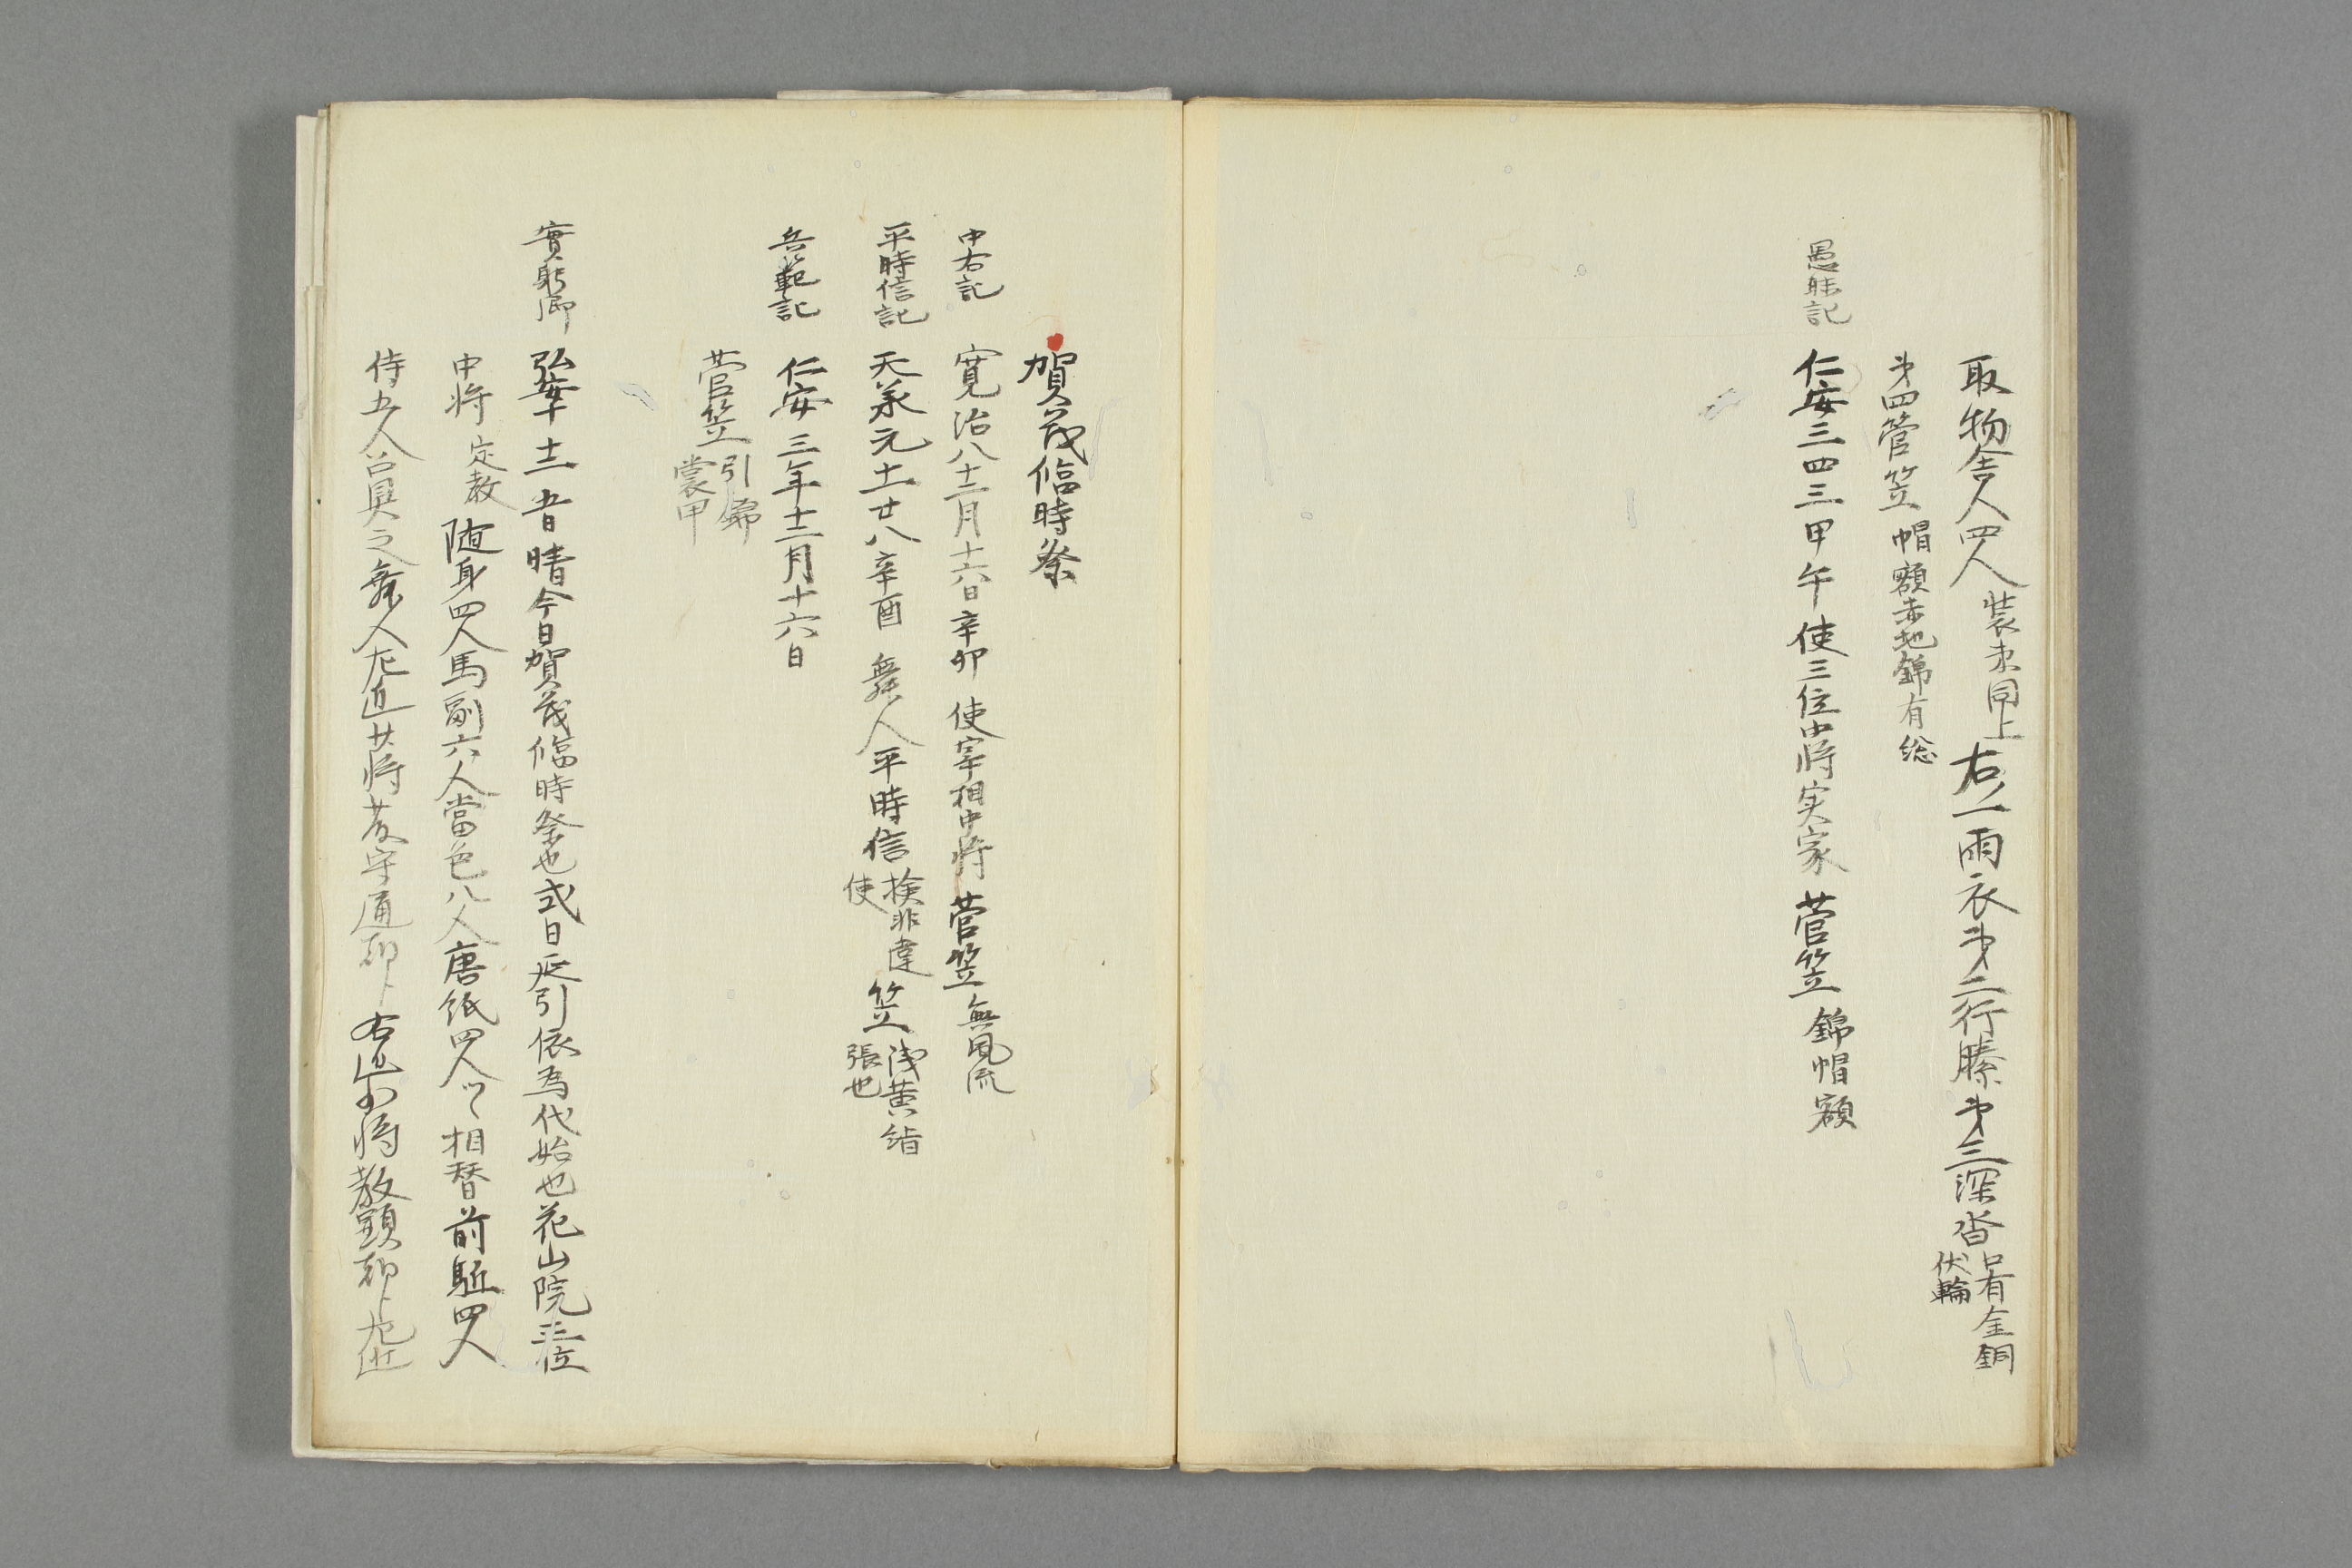 取物舎人四人装束同上右一雨衣第二行騰第三深沓口有金銅伏輪
第四菅笠帽額赤地錦有総
愚昧記 仁安三四三甲午使三位中将実家菅笠錦帽額
賀茂臨時祭
中右記 寛治八十二月十六日辛卯使宰相中将菅笠無風流
平時信記 天承元十二廿八辛酉舞人平時信検非違使笠浅黄絹張也
兵範記 仁安三年十二月十六日
菅笠引錦裳甲
實躬卿 弘安十十二 五日晴今日賀茂臨時祭也式日延引依為代始也花山院三位
中将定教随身四人馬副六人當色八人唐紙四人相替前駈四人
侍五人召具之舞人左近少将 守通朝臣右近少将教顕朝臣左近